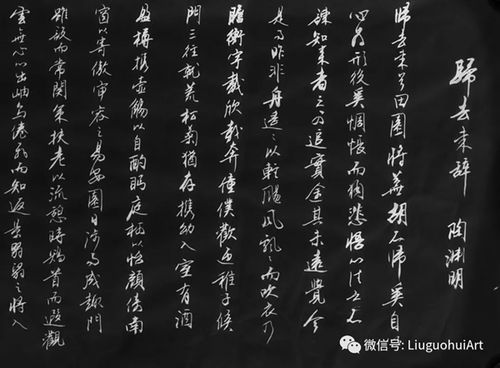 歸去来辞 陶渊明
歸去来兮田園将蕪胡不歸奚自
心為形役奚惆悵而獨悲悟以往之不
諫知来者之可追實途其未遠覺今
是而昨非舟遥々以軽颺風飄々而吹衣乃
瞻衡宇載欣載奔僮僕歡迎稚子候
門三徑就荒松菊猶存携幼入室有酒
盈樽携壺觴以自酌眄庭柯以怡顔倚南
窗以寄傲審容之易安園日涉以成趣門
雖設而常関策扶老以流憩時矯首而遐觀
雲無心以出岫鳥倦飛而知返景翳翳之将入
微信号: LiuguohuiArt